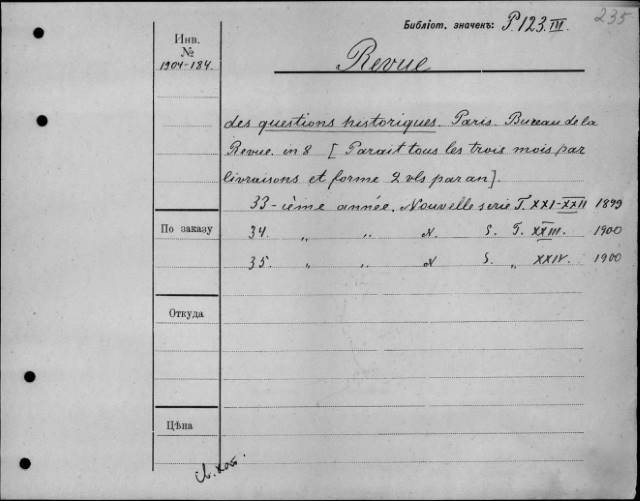 235
Библіот. значекъ: P.123.III
Инв.
№
1904-184.
Revue
des questions historiques. Paris. Bureau de la
Revue. in 8 [Parait tous les trois mois par
livraisons et forme 2 vls par an].
33-ième année. Nouvelle serie T. XXI-XXII 1899
По заказу
34. „ „ N. S. T. XXIII. 1900
35. „ „ N S. „ XXIV. 1900
Откуда
Цѣна